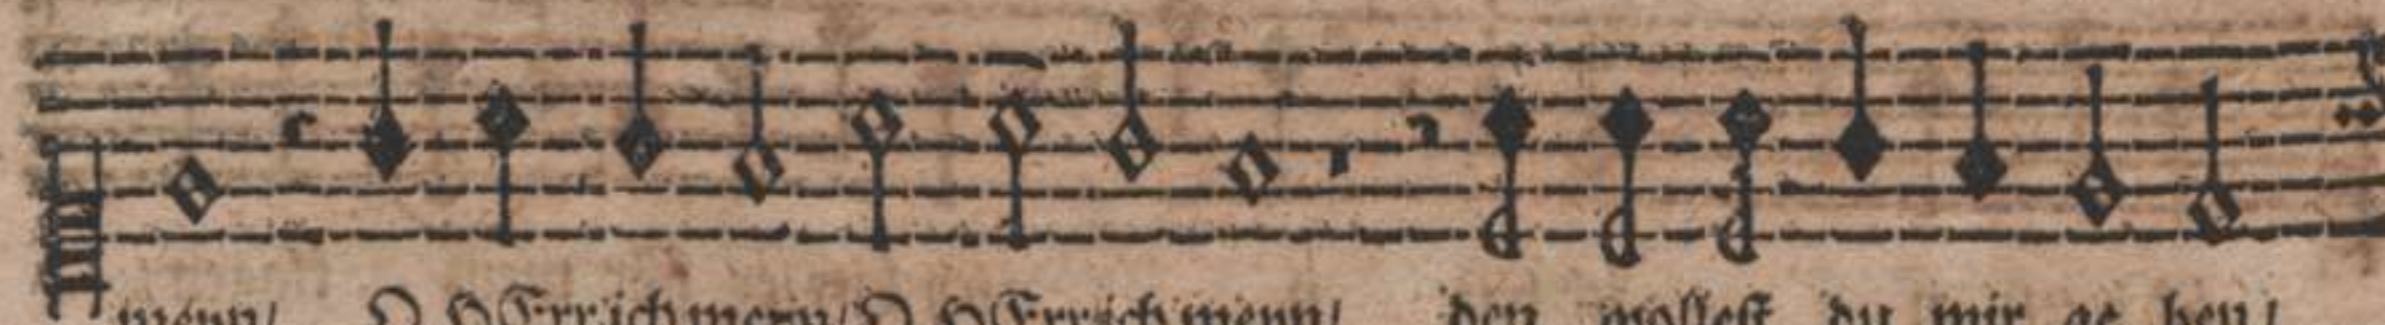 menn/ O HErr ich menn/ O HErr ich menn/ den wollest du mir ge ben/